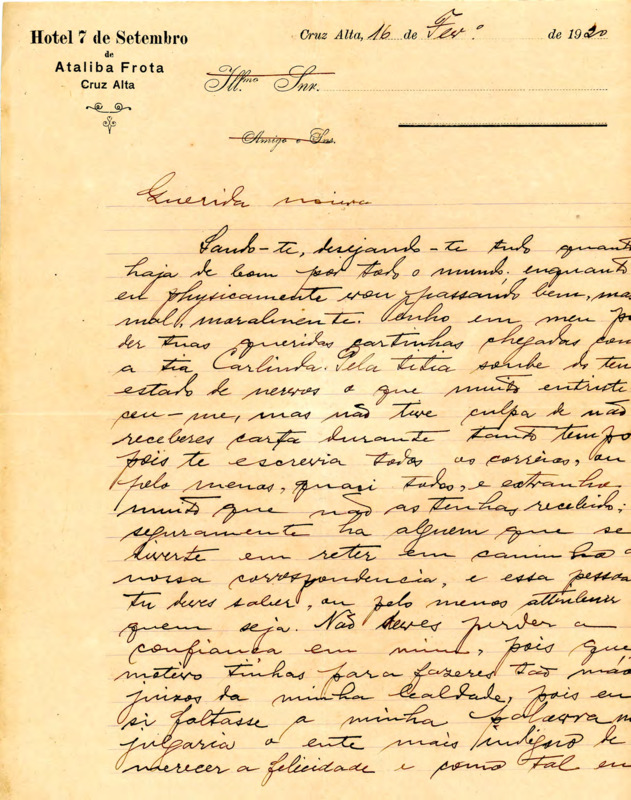 Hotel 7 de Setembro
de
Ataliba Frota
Cruz Alta
Cruz Alta, 16 de Fev.º de 1920
Ill.mo Snr.
Amigo e Snr.
Querida noiva
Saudo-te, desejando-te tudo quanto
haja de bom por todo o mundo, enquanto
eu physicamente vou passando bem, mas
mal, moralmente. Tenho em meu po
der tuas queridas cartinhas chegadas com
a tia Carlinda. Pela titia soube do teu
estado de nervos o que muito entriste
ceu-me, mas não tive culpa de não
receberes carta durante tanto tempo
pois te escrevia todos os correios, ou
pelo menos, quasi todos, e extranho
muito que não as tenhas recebido;
seguramente ha alguem que se
diverte em reter em caminho a
nossa correspondencia, e essa pessoa
tu deves saber, ou pelo menos attribuir
quem seja. Não deves perder a
confiança em mim, pois que
motivo tinhas para fazeres tão máo
juizos da minha lealdade, pois eu
si faltasse a minha palavra me
julgaria o ente mais indigno de
merecer a felicidade e como tal eu